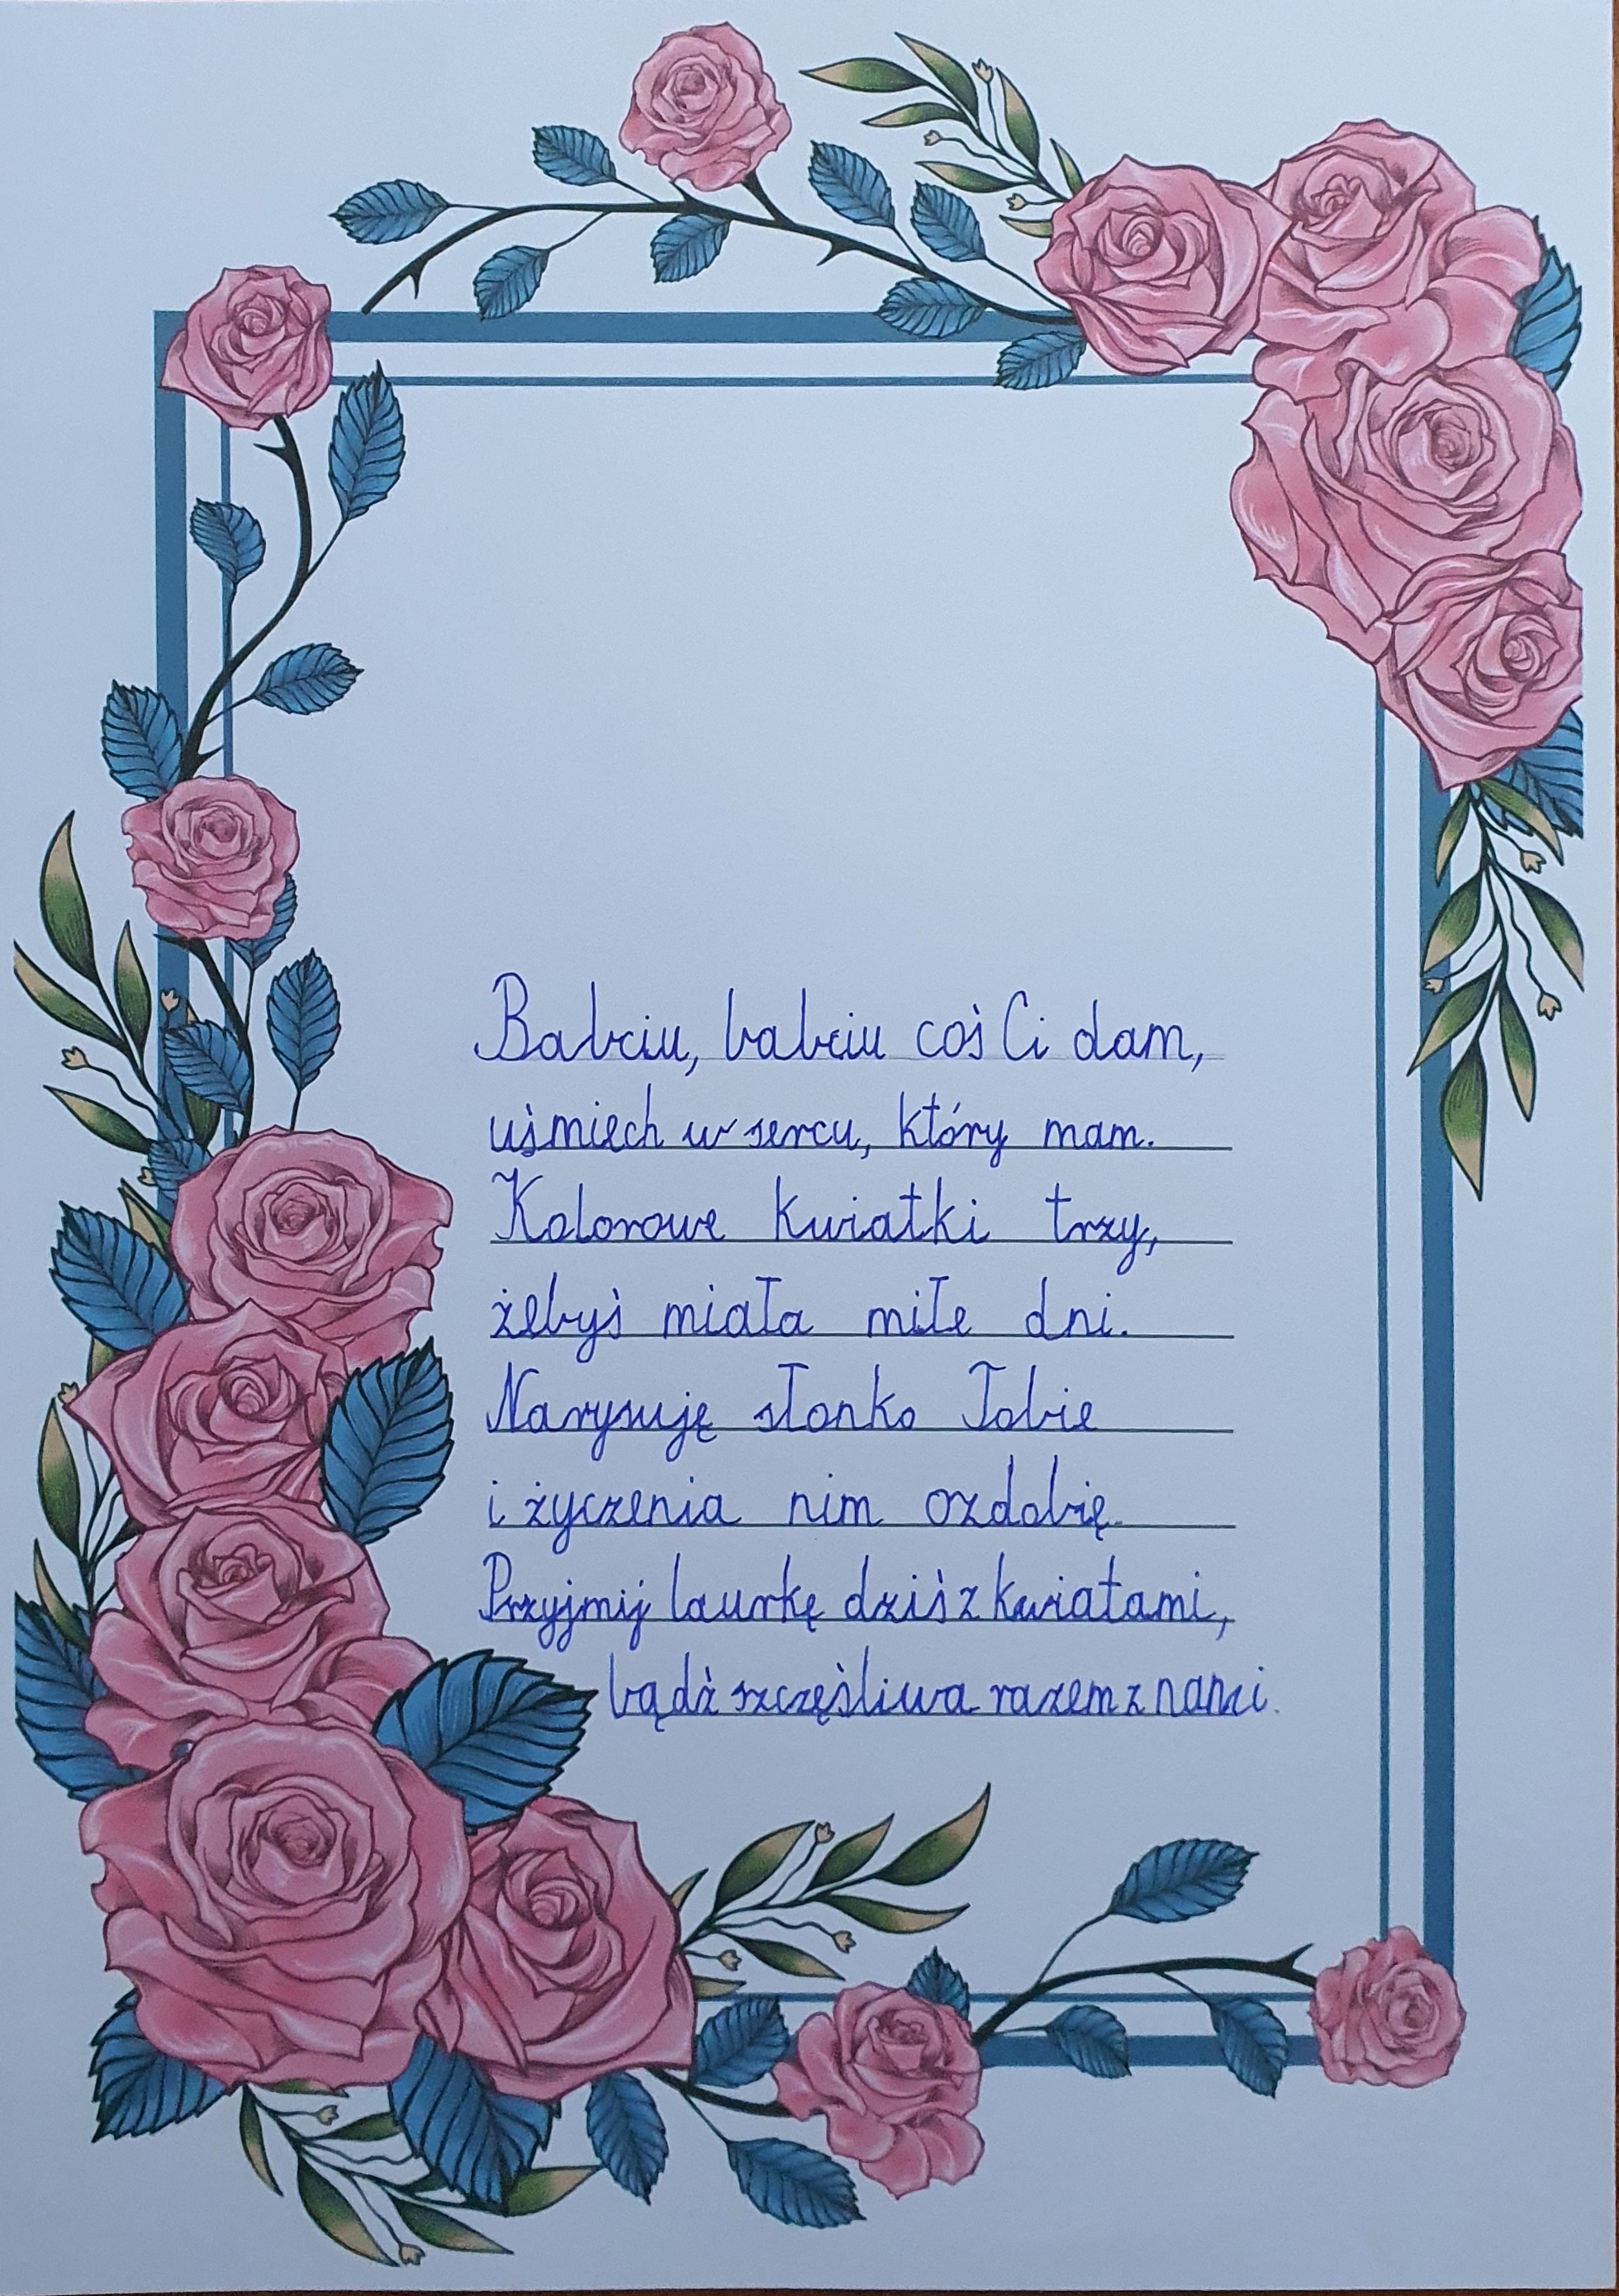 Babciu, babciu coś Ci dam,
uśmiech w sercu, który mam.
Kolorowe kwiatki trzy,
żebyś miała miłe dni.
Narysuję słonko Tobie
i życzenia nim ozdobię.
Przyjmij laurkę dziś z kwiatami,
bądź szczęśliwa razem z nami.